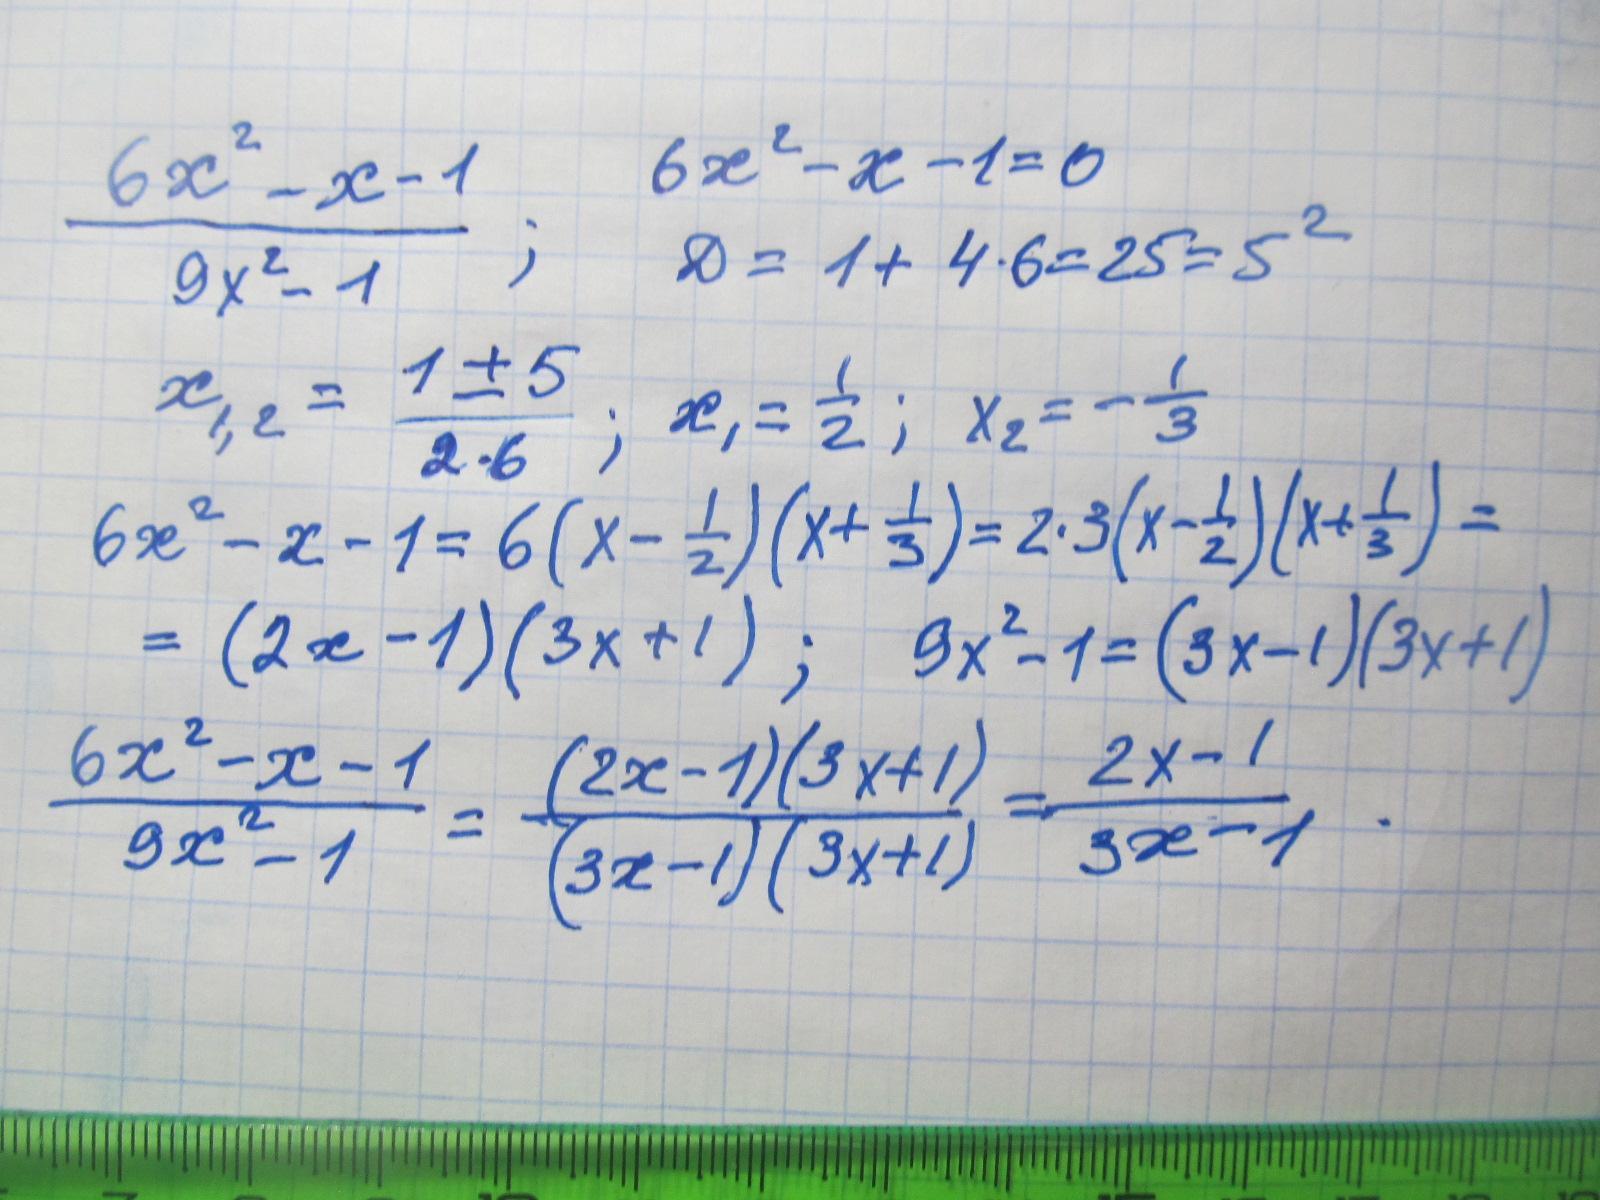 (6x² - x - 1)/(9x² - 1) ; 6x² - x - 1 = 0
D = 1 + 4·6 = 25 = 5²
x₁,₂ = (1 ± 5)/(2·6) ; x₁ = 1/2 ; x₂ = -1/3
6x² - x - 1 = 6(x - 1/2)(x + 1/3) = 2·3(x - 1/2)(x + 1/3) =
= (2x - 1)(3x + 1) ; 9x² - 1 = (3x - 1)(3x + 1)
(6x² - x - 1)/(9x² - 1) = ((2x - 1)(3x + 1))/((3x - 1)(3x + 1)) = (2x - 1)/(3x - 1) .